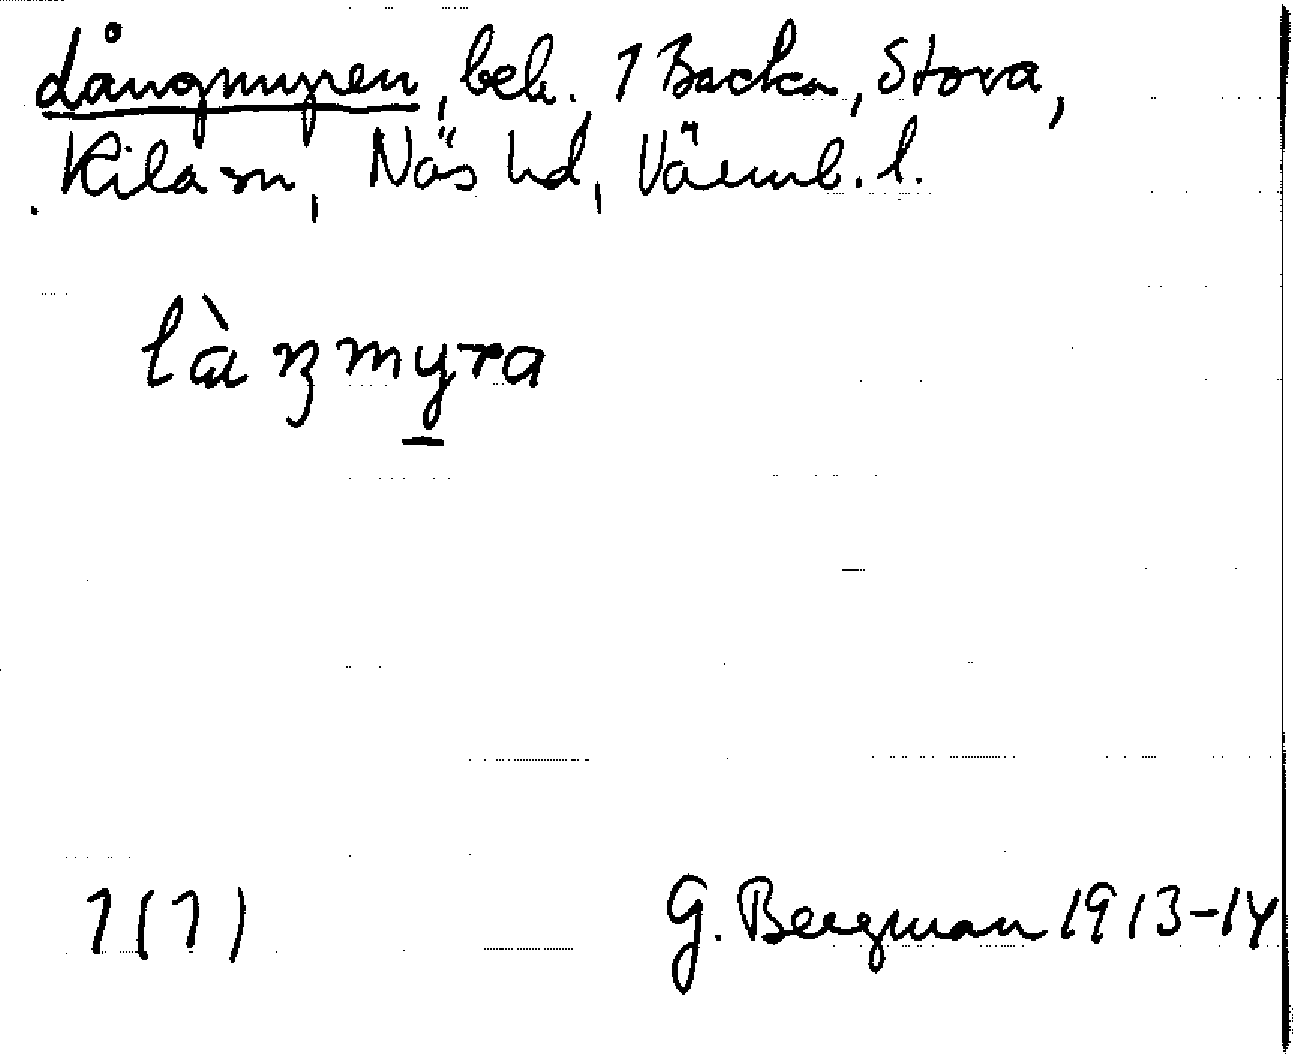 Långmyren, beb. 1 Backa, Stora,
Kila sn, Näs hd, Värml. l.
làŋmyra
1(1) G. Bergman 1913-14